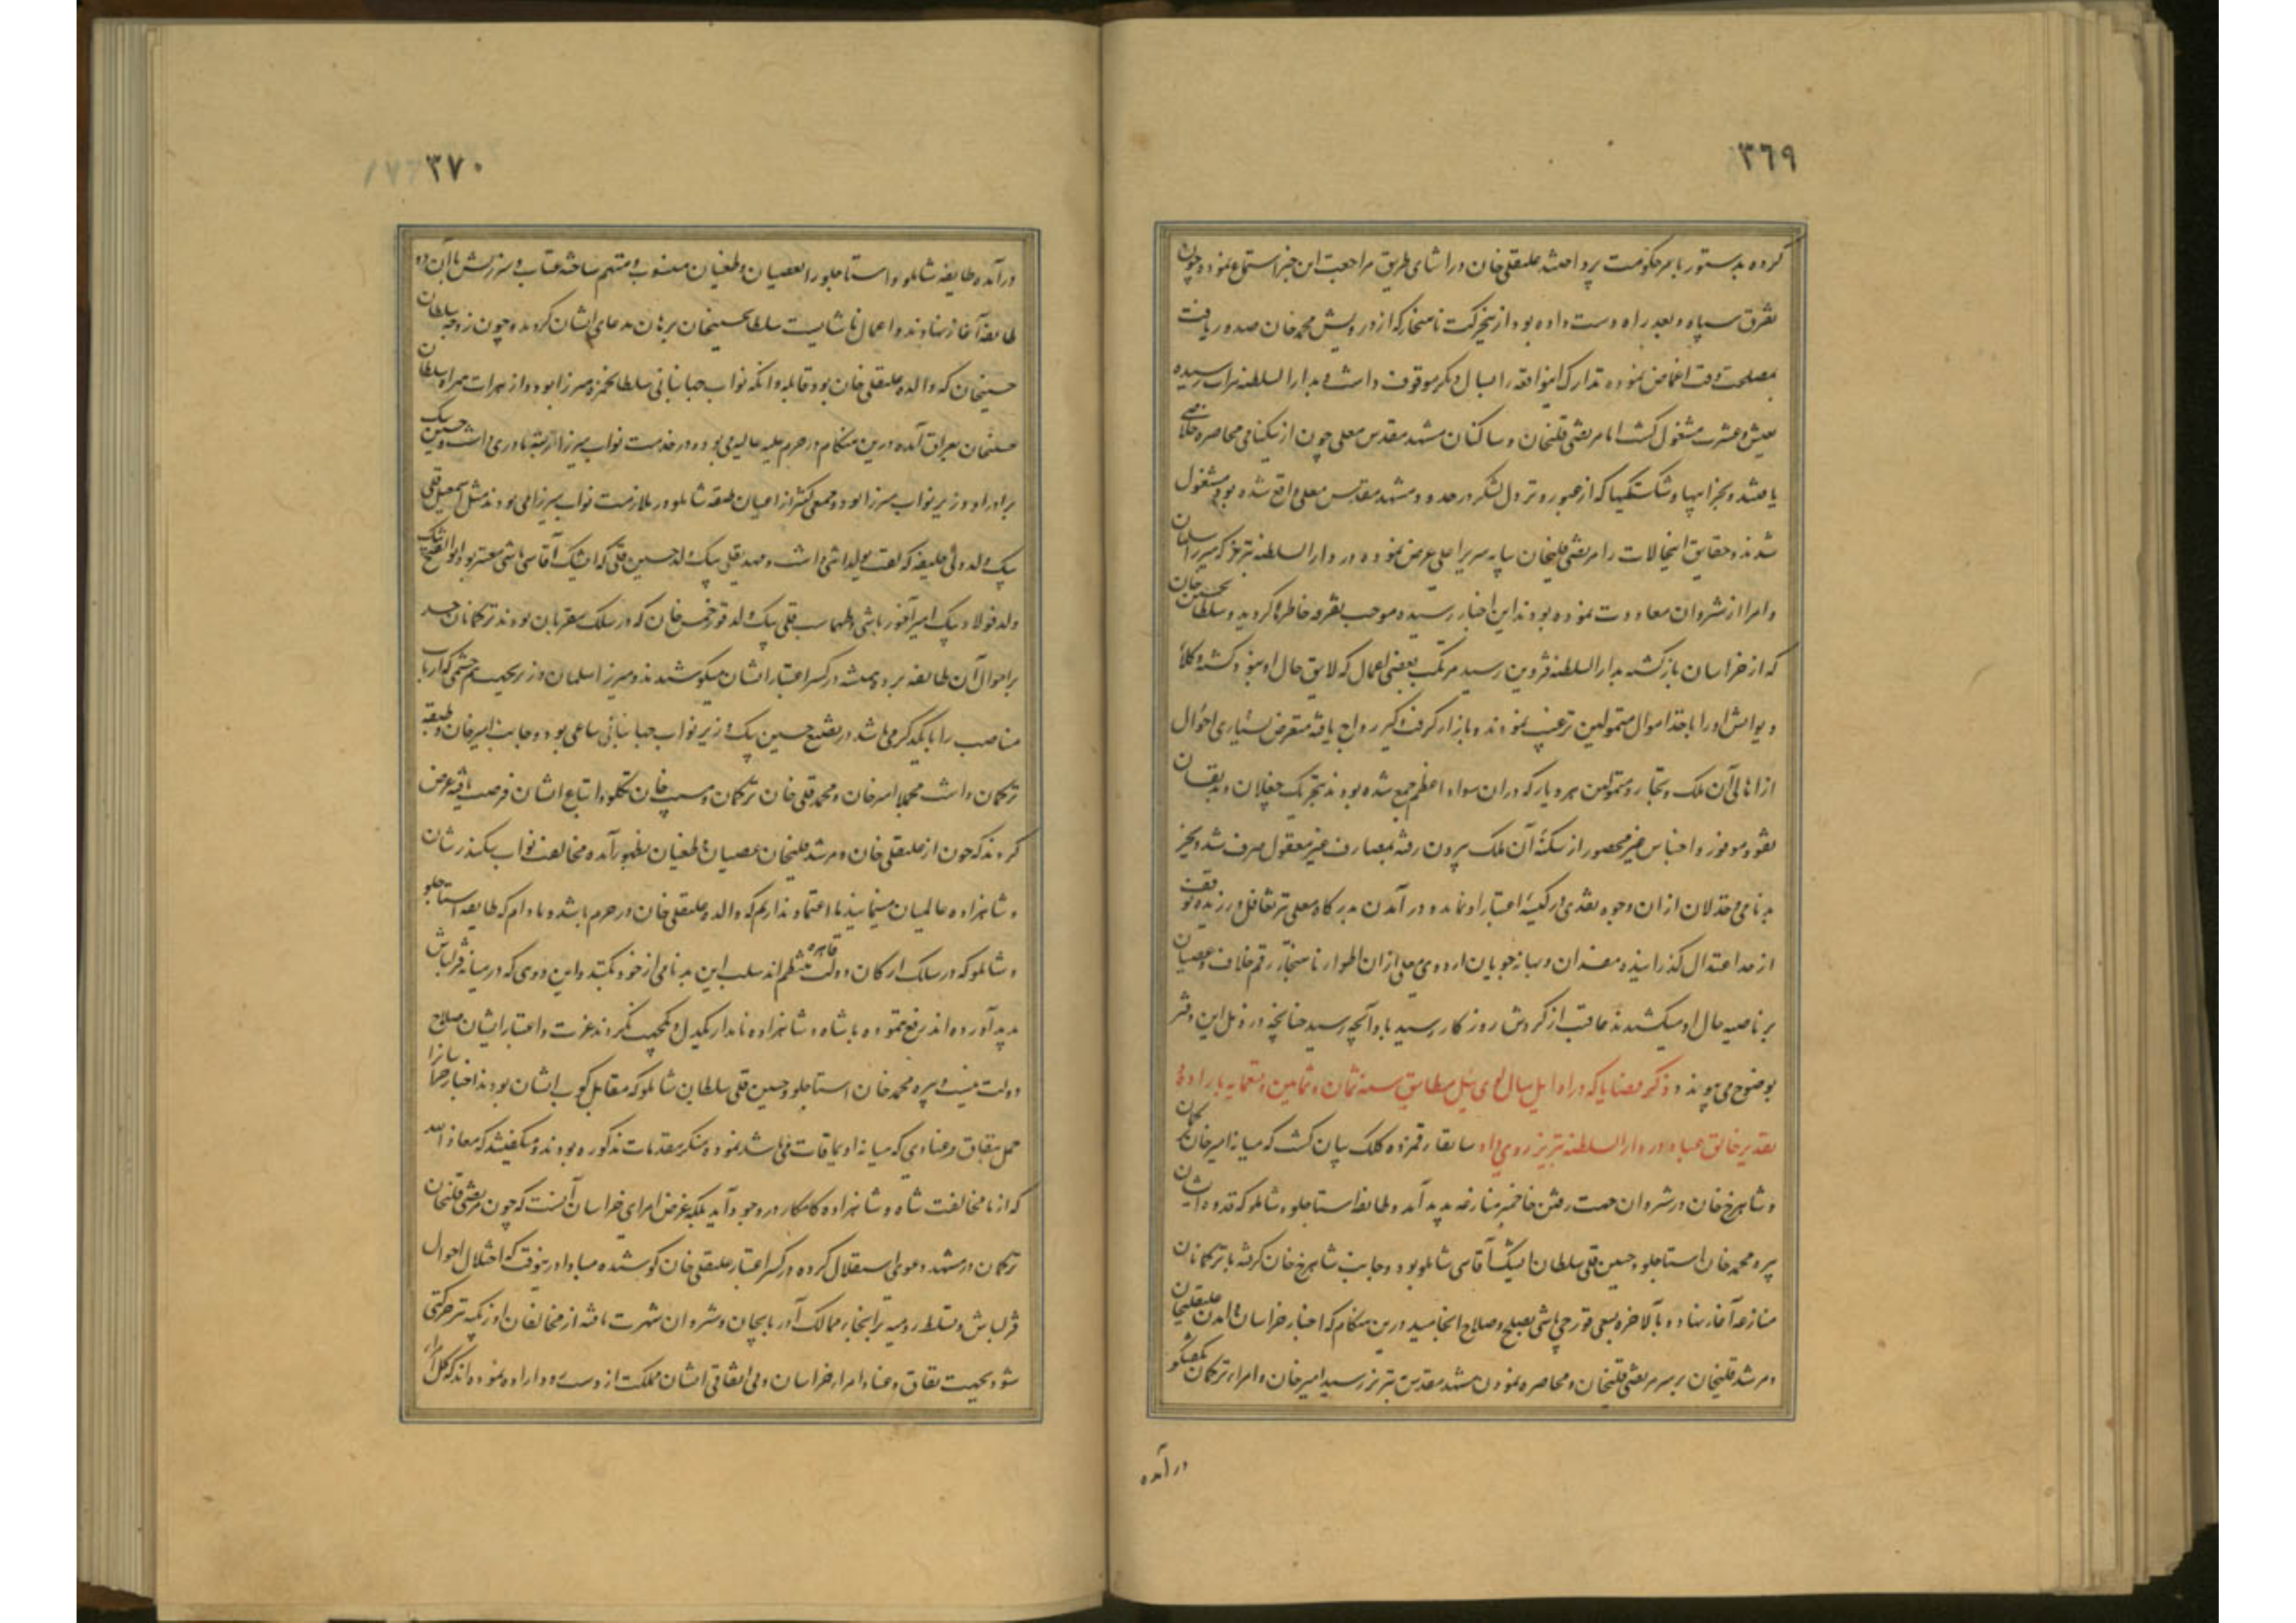 ٣٦٩
کرده بدستور بامر حکومت پرداختند علیقلی خان در اثنای طریق مراجعت این خبر استماع نموده چون
تفرق سپاه و بعد راه دست داده بود از حرکت ناهنجار که از درویش محمد خان صدور یافت
بمصلحت وقت اغماض نموده تدارک اینواقعه را بسال دیگر موقوف داشت و بدار السلطنه هرات رسیده
بعیش و عشرت مشغول گشت اما مرتضی قلیخان و ساکنان مشهد مقدس معلی چون از تنکنای محاصره خلاصی
یافتند و بخرابیها و شکستکیها که از عبور و نزول لشکر در حدود مشهد مقدس معلی واقع شده بود مشغول
شدند و حقایق اینحالات را مرتضی قلیخان بپایه سریر اعلی عرض نموده در دار السلطنه تبریز که میرزا سلمان
و امرا از شروان معاودت نموده بودند این اخبار رسیده موجب تفرقه خاطرها کردید و سلطان حسین خان
که از خراسان بازگشته بدار السلطنه قزوین رسید مرتکب بعضی اعمال که لایق حال او نبود گشته وکلا
دیوانش او را باخذ اموال متمولین ترغیب نمودند و بازار گرفت و گیر رواج یافته متعرض بسیاری احوال
از اهالی آن ملک و تجار و متمولین هر دیار که در ان سواد اعظم جمع شده بودند بتحریک جغلان و بدنفسان
نقود موفور و اجناس غیر محصور از سکنهٔ آن ملک بیرون رفته بمصارف غیر معقول صرف شد و بجز
بدنامی و خذلان از ان وجوه نقدی در کیسهٔ اعتبار او نماند و در آمدن بدرگاه معلی نیز تغافل ورزیده توقف
از حد اعتدال گذرانیده مفسدان و بهانه جویان اردوی معلی از ان اطوار ناهنجار رقم خلاف و عصیان
بر ناصیه حال او میکشیدند عاقبت از گردش روزگار رسید باو آنچه رسید چنانچه در ذیل این دفتر
بوضوح می پیوندد ذکر قضایا که در اوایل سال لوی ئیل مطابق سنه ثمان و ثمانین و تسعمایه باراده
تقدیر خالق عباد در دار السلطنه تبریز روی داد سابقا رقمزده کلک بیان گشت که میانه امیر خان ترکمان
و شاهرخ خان در شروان جهت رفتن منازعه پدید آمد و طایفه استاجلو و شاملو که قدوه ایشان
پیره محمد خان استاجلو و حسین قلی سلطان ایشک آقاسی شاملو بود و جانب شاهرخ خان گرفته با ترکمانان
منازعه آغاز نهاده بالاخره بسعی قورچی باشی بصلح و صلاح انجامید درین هنگام که اخبار خراسان و آمدن علیقلیخان
و مرشد قلیخان بر سر مرتضی قلیخان و محاصره نمودن مشهد مقدس بتبریز رسید امیر خان و امراء ترکمان بگفتگو
در آمده
٣٧٠
در آمده طایفه شاملو و استاجلو را بعصیان و طغیان منسوب و متهم ساخته عتاب و سرزنش با آن دو
طایفه آغاز نهادند و اعمال ناشایست سلطان حسینخان برهان مدعای ایشان گردیده چون زوجه سلطان
حسینخان که والده علیقلی خان بود قابله و انکه نواب جهانبانی سلطان حمزه میرزا بود و از هرات همراه سلطان
حسینخان بعراق آمده درین هنگام در حرم علیه عالیه می بود و در خدمت نواب میرزا رتبهٔ مادری داشت و حسین بیک
برادر او وزیر نواب میرزا بود و جمعی کثیر از اعیان طبقه شاملو در ملازمت نواب میرزا می بودند مثل اسمعیل قلی
بیک ولد ولی خلیفه که لقب یولداشی داشت و مهدیقلی بیک ولد حسین قلی که ایشک آقاسی باشی معتبر بود و ابو الفتح بیک
ولد فولاد بیک امیر آخور باشی و طهماسب قلی بیک ولد قورخمس خان که در سلک مقربان بودند ترکمانان حسد
بر احوال آن طایفه برده همیشه در کسر اعتبار ایشان میکوشیدند و میرزا سلمان وزیر بجهت هم چشمی که ارباب
مناصب را با یکدیگر می باشد در تضییع حسین بیک وزیر نواب جهانبانی ساعی بود و جانب امیر خان و طبقه
ترکمان داشت مجملا امیر خان و محمد قلی خان ترکمان و مسیب خان تکلو و اتباع ایشان فرصت یافته عرض
کردند که چون از علیقلی خان و مرشد قلیخان عصیان و طغیان بظهور آمده مخالفت نواب سکندر شان
و شاهزاده عالمیان مینمایند ما اعتماد نداریم که والده علیقلی خان در حرم باشد و مادام که طایفه استاجلو
و شاملو که در سلک ارکان دولت قاهره منتظم اند سلب این بدنامی از خود نکنند و این دوی که در میانه قزلباش
پدید آورده اند رفع ننموده با شاه و شاهزاده نامدار یکدل و یکجهت نگردند عزت و اعتبار ایشان صلاح
دولت نیست و پیره محمد خان استاجلو و حسین قلی سلطان شاملو که مقابل کوب ایشان بودند اخبار خراسانرا
حمل بنفاق و عنادی که میانه اویماقات می باشد نموده منکر مقدمات مذکوره بودند و میگفتند که معاذ الله
که از ما مخالفت شاه و شاهزاده کامکار در وجود آید بلکه غرض امرای خراسان آنست که چون مرتضی قلیخان
ترکمان در مشهد دعوی استقلال کرده در کسر اعتبار علیقلی خان کوشیده مبادا درینوقت که اختلال احوال
قزلباش و تسلط رومیه بر انجا بممالک آذربایجان و شروان شهرت یافته از مخالفان اوزبکیه نیز حرکتی
شود بجهت نفاق و عناد امراء خراسان و بی اتفاقی ایشان مملکت از دست رود اراده نموده اند که کل امراء